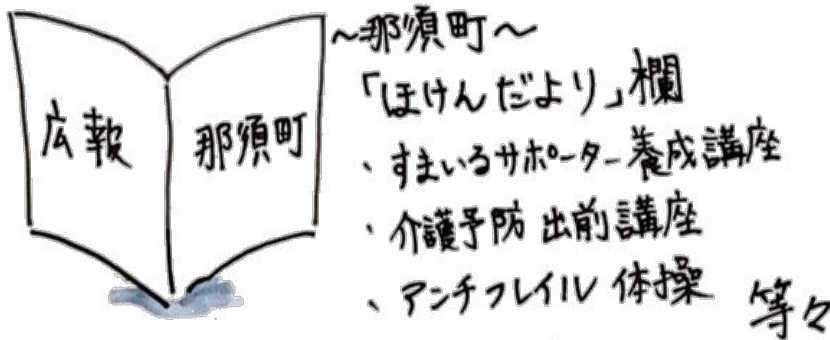 広報 那須町
～那須町～
「ほけんだより」欄
・すまいるサポーター養成講座
・介護予防 出前講座
・アンチフレイル 体操 等々